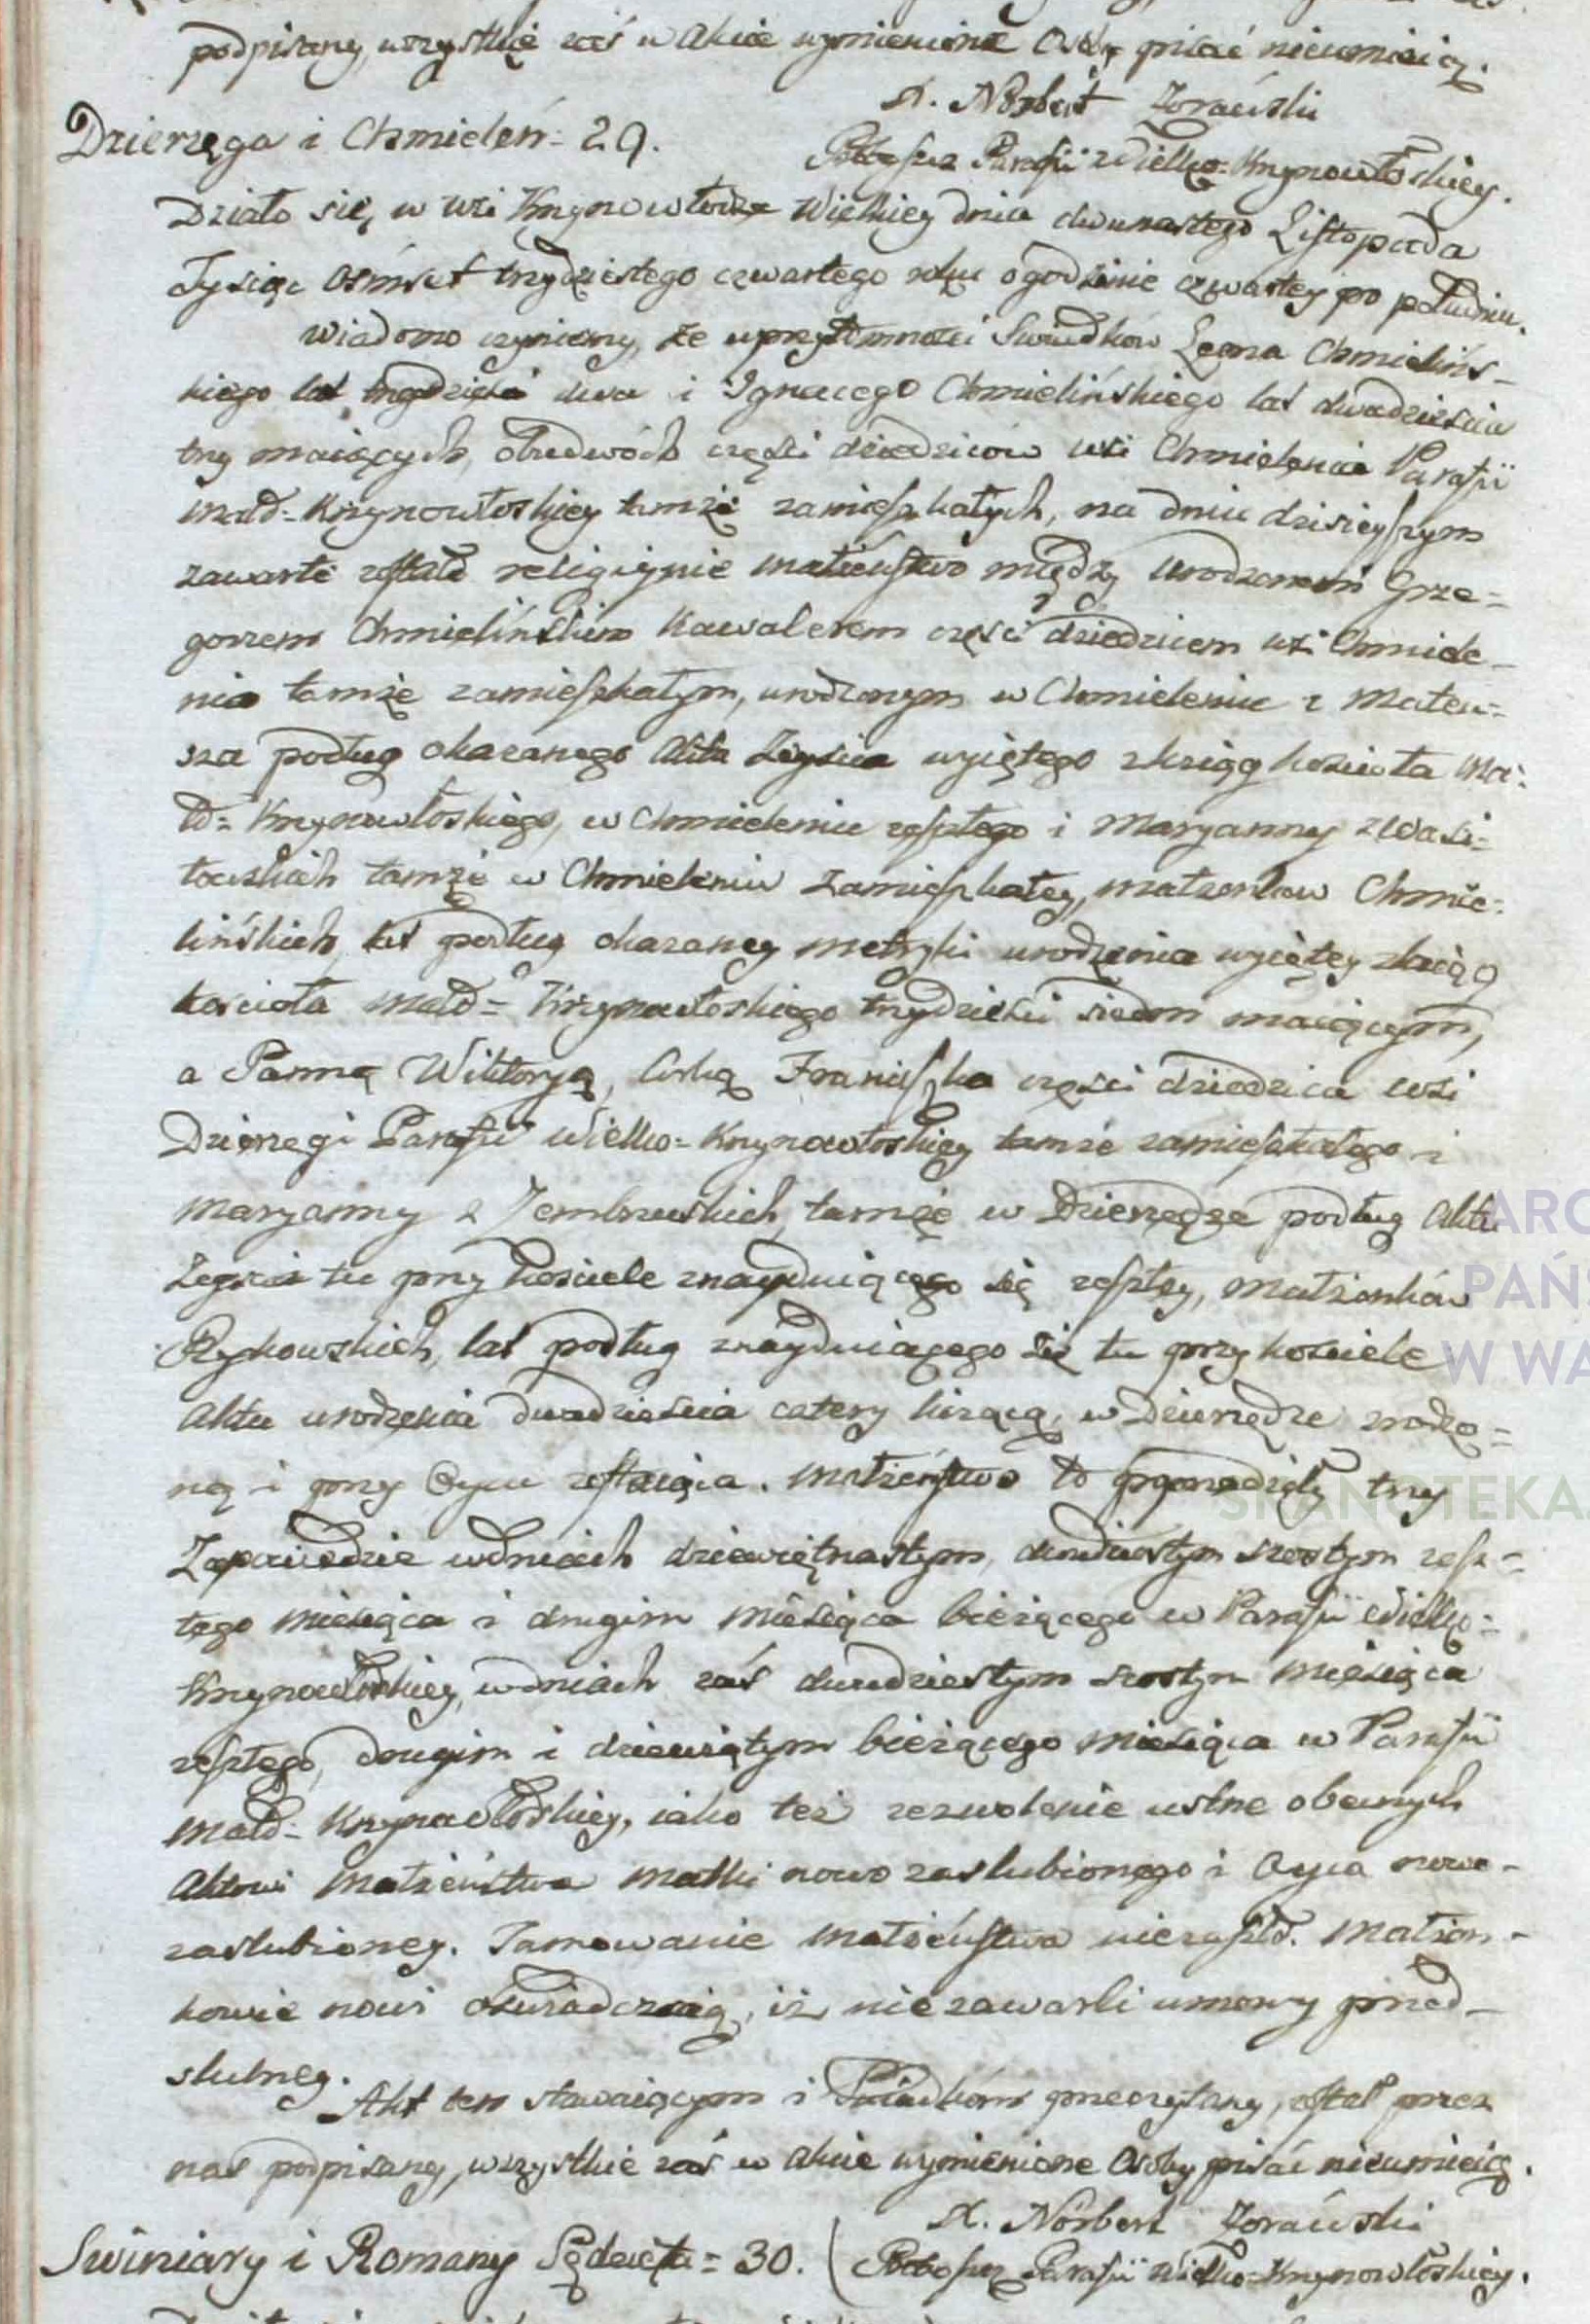 podpisany, wszystkie zaś w akcie wymienione Osoby pisać nieumieią.
X. Norbert Zorawski
Dzierzęga i Chmieleń = 29.
Proboszcz Parafii Wielko=Krzynowłoskiey.
Działo się, w wsi Krzynowłodze Wielkiey dnia dwunastego Listopada
Tysiąc Osmset trzydziestego czwartego roku o godzinie czwartey po południu.
Wiadomo czynimy, że w przytomności Swiadków Leona Chmielińs-
kiego lat trzydzieści dwa i Ignacego Chmielińskiego lat dwadzieścia
trzy maiących, obudwóch części dziedziców wsi Chmielenia Parafii
Mało=Krzynowłoskiey tamże zamieszkałych, na dniu dzisieyszym
zawarte zostało religiynie małżeństwo między Urodzonem Grze=
gorzem Chmielińskim Kawalerem części dziedzicem wsi Chmiele-
nia tamże zamieszkałym, urodzonym w Chmieleniu z Mateu=
sza podług okazanego Aktu Zeyścia wyiętego z ksiąg kościoła Ma=
ło=Krzynowłoskiego, w Chmieleniu zeszłego i Maryanny z Wasi=
łowskich tamże w Chmieleniu zamieszkałey, małżonków Chmie=
lińskich, lat podług okazaney metryki urodzenia wyiętey z ksiąg
kościoła Mało=Krzynowłoskiego trzydzieści siedm maiącym,
a Panną Wiktoryą, Corką Franciszka części dziedzica wsi
Dzierzęgi Parafii Wielko=Krzynowłoskiey tamże zamieszkałego i
Maryanny z Zembrzuskich, tamże w Dzierzędze podług Aktu
Zeyścia tu przy kościele znayduiącego się zeszłey, małżonków
Rykowskich, lat podług znayduiącego się tu przy kościele
Aktu urodzenia dwadzieścia cztery liczącą, w Dzierzędze zrodzo=
ną i przy Oycu zostaiąca. Małżeństwo to poprzedziły trzy
Zapowiedzie w dniach dziewiętnastym, dwudziestym szostym zesz=
łego miesiąca i drugim miesiąca bieżącego w Parafii Wielko=
Krzynowłoskiey, w dniach zaś dwudziestym szostym miesiąca
zeszłego, drugim i dziewiątym bieżącego miesiąca w Parafii
Mało=Krzynowłoskiey, iako też zezwolenie ustne obecnych
Aktowi Małżeństwa matki nowo zaslubionego i Oyca nowo-
zaslubioney. Tamowanie małżeństwa nie zaszło. Małżon-
kowie nowi oświadczaią, iż nie zawarli umowy przed-
slubney.
Akt ten stawaiącym i Swiadkom przeczytany, został przez
nas podpisany, wszystkie zaś w akcie wymienione Osoby pisać nieumieią.
X. Norbert Zorawski
Swiniary i Romany Sędzięta = 30.
Proboszcz Parafii Wielko=Krzynowłoskiey.
ARC
PAŃ
W WA
SKANOTEKA.